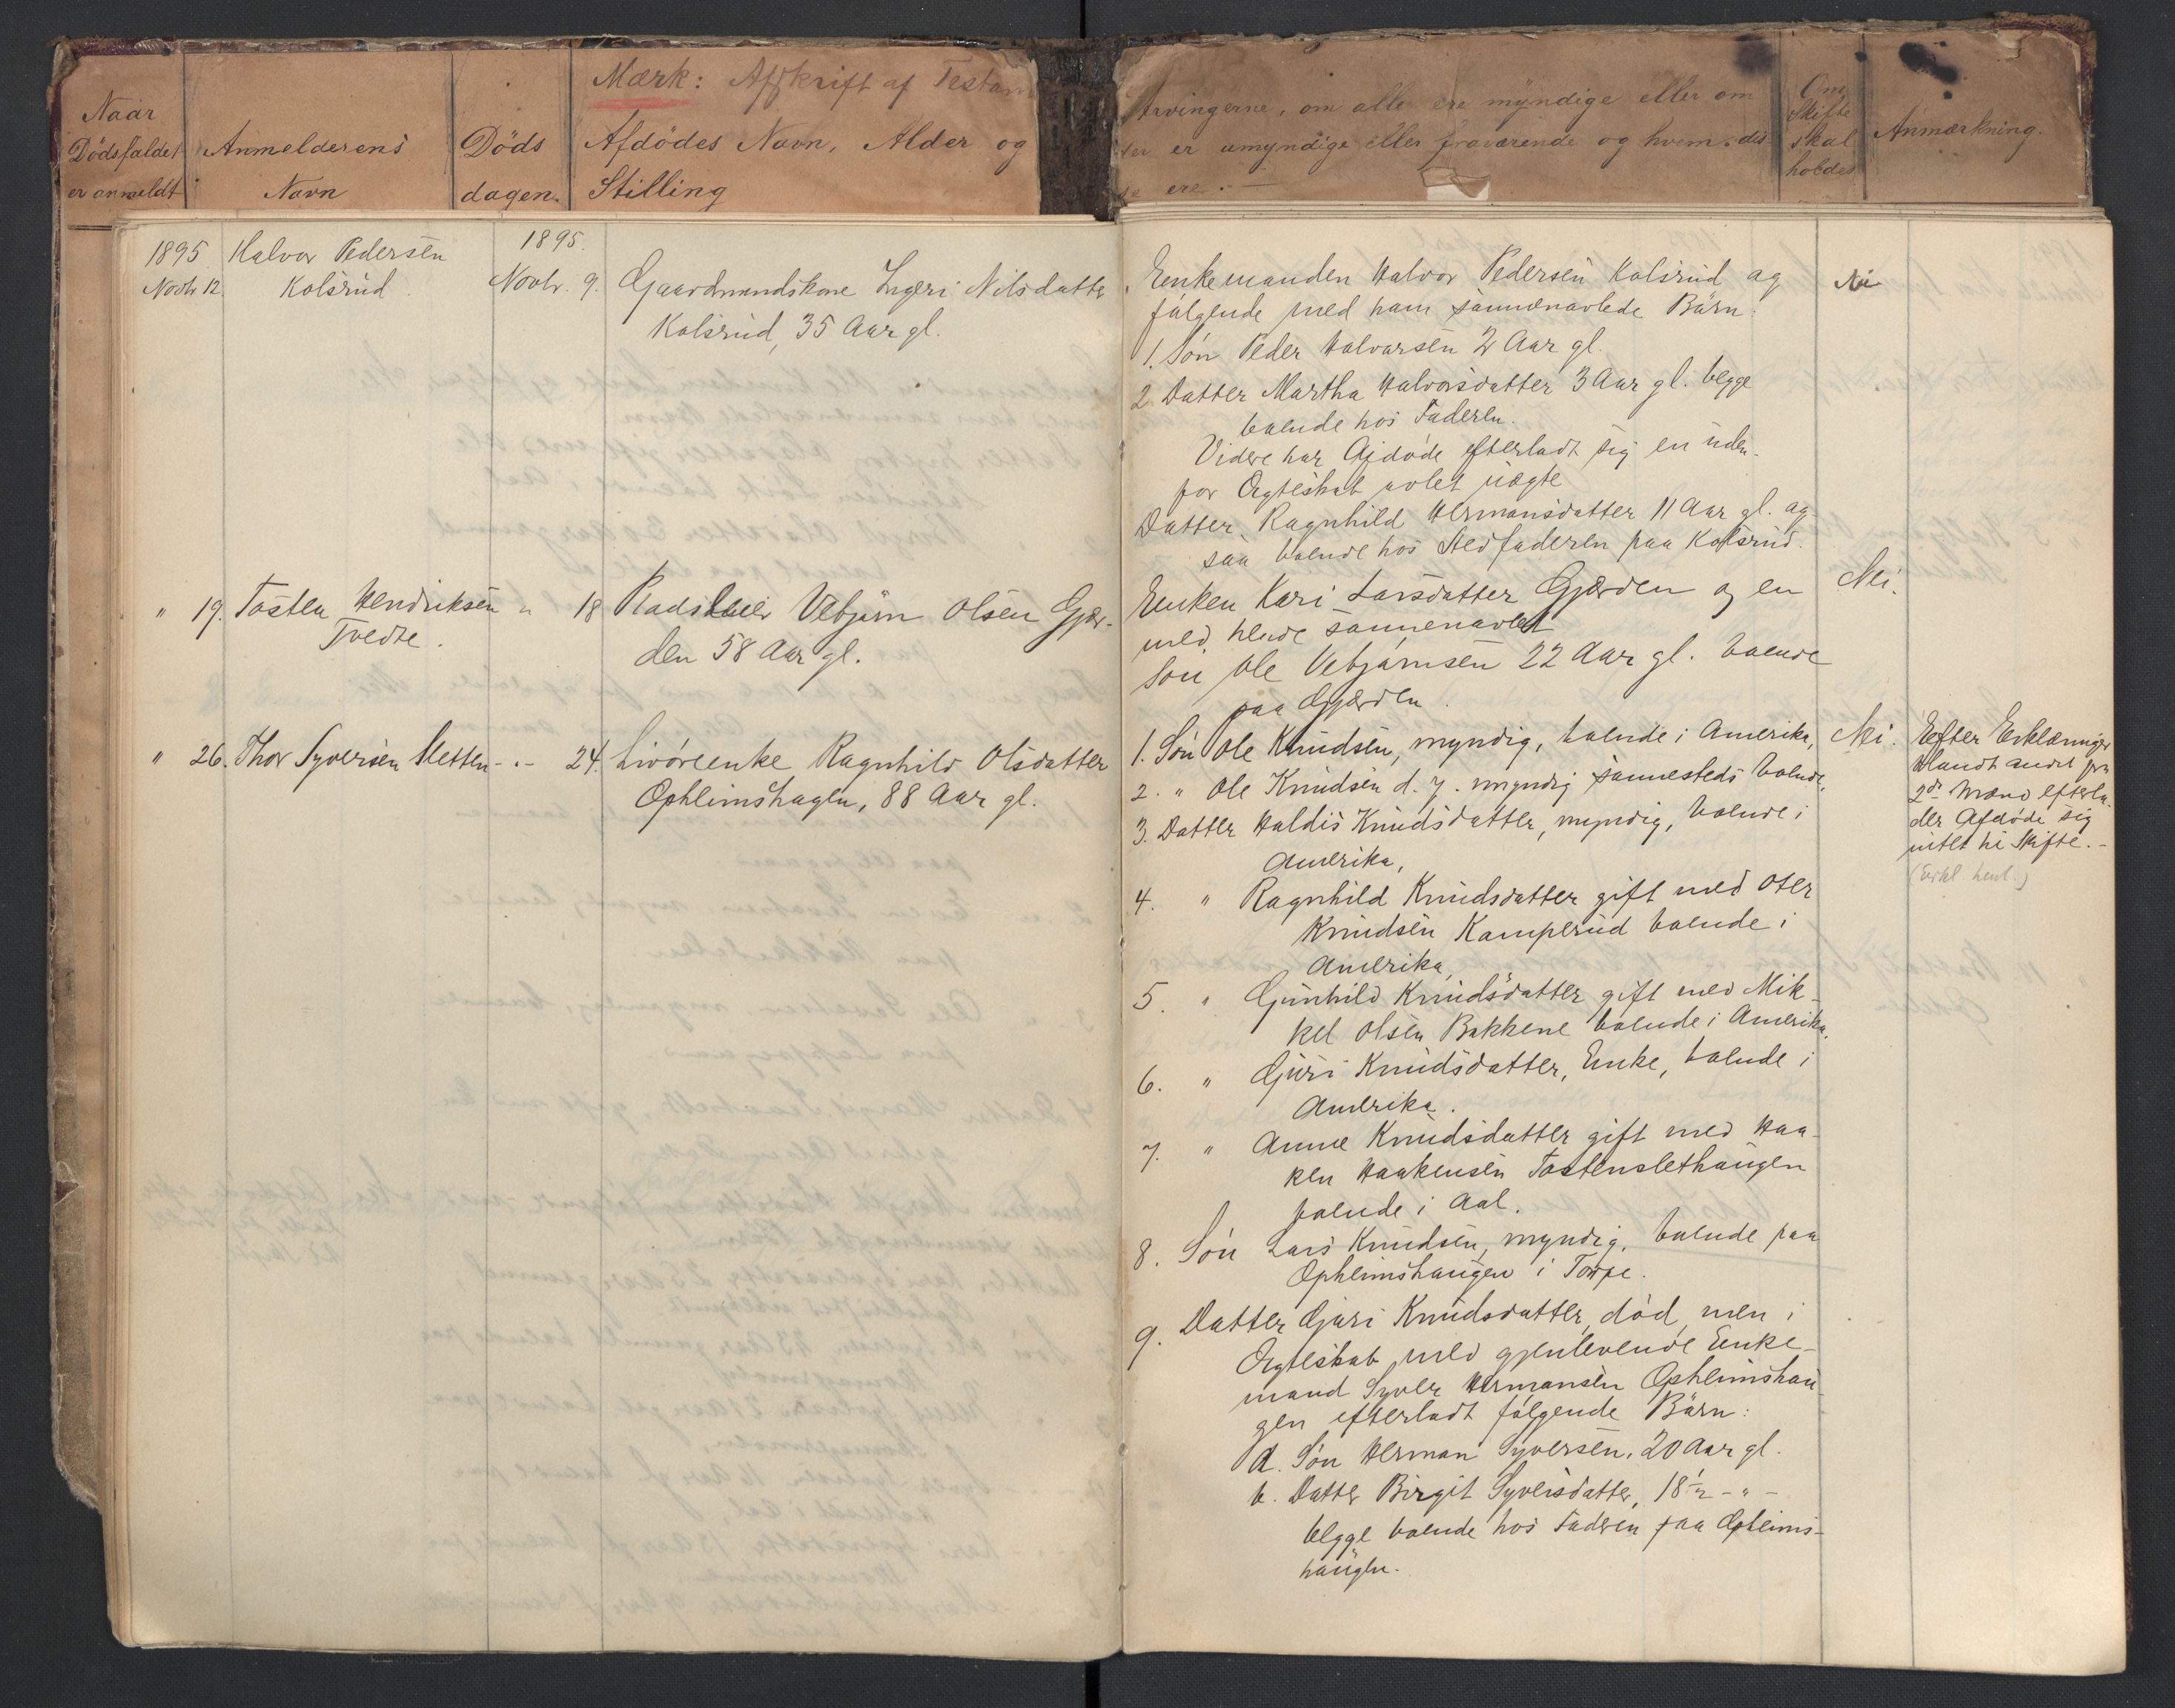 Mærk: Afskrift af Testam
Naar
Dödsfaldet
er anmeldt
Anmelderens
Navn
Döds
dagen.
Afdödes Navn, Alder og
Stilling
Arvingerne, om alle ere myndige eller om
der er umyndige eller fraværende og hvem dis-
se ere. —
Om
Skifte
skal
holdes
Anmærkning.
1895
Novbr 12
Halvor Pedersen
Kolsrud.
1895.
Novbr. 9.
Gaardmandskone Ingeri Nilsdatter
Kolsrud, 35 Aar gl.
Enkemanden Halvor Pedersen Kolsrud og
følgende med ham sammenavlede Börn:
1. Sön Peder Halvorsen 2 Aar gl.
2. Datter Martha Halvorsdatter 3 Aar gl. begge
boende hos Faderen.
Videre har Afdöde efterladt sig en uden-
for Ægteskab avlet uægte
Datter Ragnhild Hermansdatter 11 Aar gl. og
saa boende hos Stedfaderen paa Kolsrud.
Nei
" 19. Tosten Hendriksen
Tvedte.
" 18
Pladsleier Vebjörn Olsen Gjær-
den 58 Aar gl.
Enken Kari Larsdatter Gjærden og en
med hende sammenavlet
Sön Ole Vebjörnsen 22 Aar gl. boende
paa Gjærden.
Nei.
" 26. Thor Syversen Sletten
- " - 24.
Livöreenke Ragnhild Olsdatter
Opheimshagen, 88 Aar gl.
1. Sön Ole Knudsen, myndig, boende i Amerika,
2. " Ole Knudsen d. y. myndig sammesteds boende,
3. Datter Haldis Knudsdatter, myndig, boende i
Amerika,
4. " Ragnhild Knudsdatter gift med Oter
Knudsen Kamperud boende i
Amerika,
5. " Gunhild Knudsdatter gift med Mik-
kel Olsen Bakkene boende i Amerika.
6. " Guri Knudsdatter, Enke, boende i
Amerika.
7. " Anne Knudsdatter gift med Haa-
ken Haakensen Tostenslethaugen
boende i Aal.
8. Sön Lars Knudsen, myndig, boende paa
Opheimshaugen i Torpe.
9. Datter Guri Knudsdatter, död, men i
Ægteskab med gjenlevende Enke-
mand Syver Hermansen Opheimshau-
gen efterladt følgende Börn:
a. Sön Herman Syversen, 20 Aar gl.
b. Datter Birgit Syversdatter, 18 1/2 - " -
begge boende hos Faderen paa Opheims-
haugen.
Nei.
Efter Erklæringer
blandt andet fra
2de Mænd efterla-
der Afdöde sig
intet til Skifte. -
(Erkl. henl.)